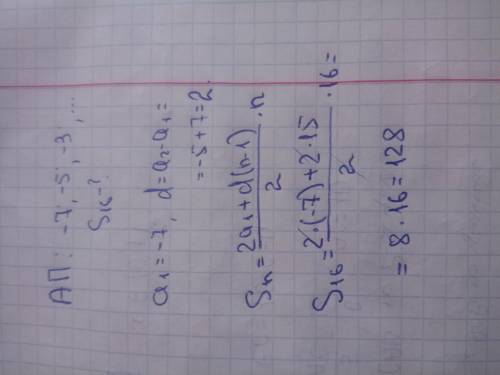 АП: -7, -5, -3, ...
S₁₆ - ?
a₁ = -7, d = a₂ - a₁ =
= -5 + 7 = 2.
Sₙ = (2a₁ + d(n-1))/2 · n
S₁₆ = (2·(-7) + 2·15)/2 · 16 =
= 8 · 16 = 128